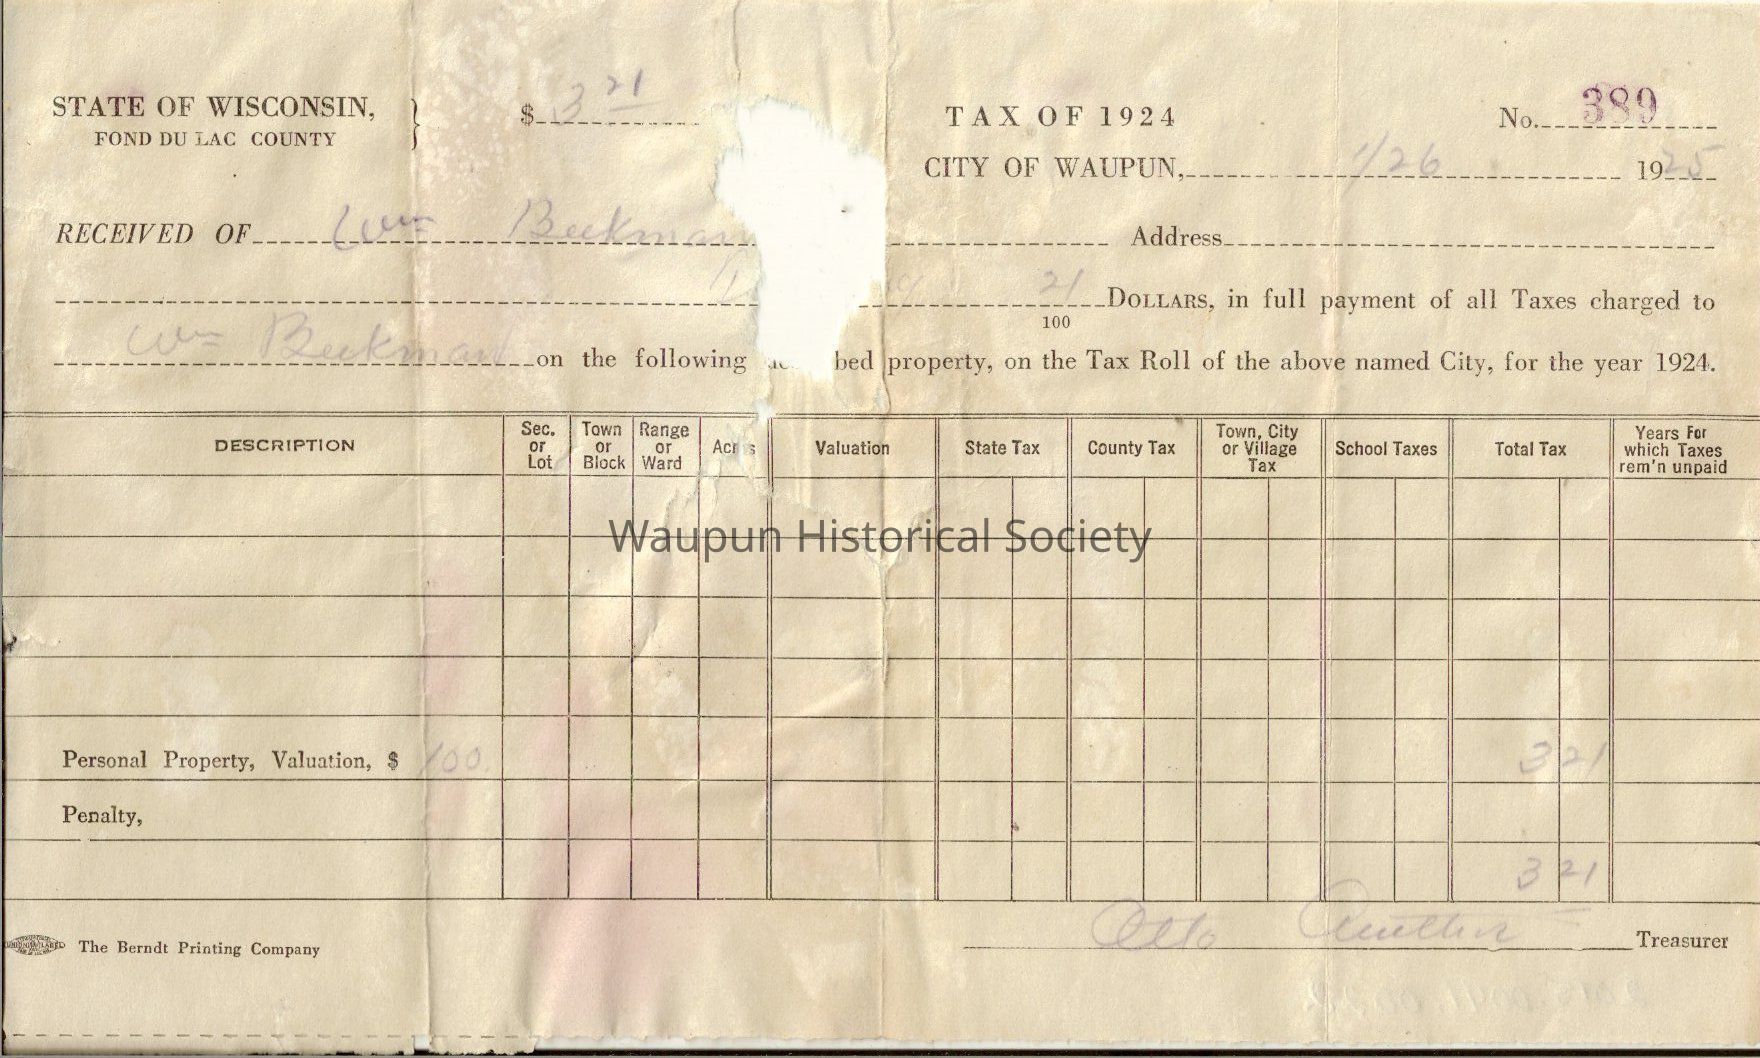 STATE OF WISCONSIN, $ 3 21 TAX OF 1924 No. 389
FOND DU LAC COUNTY
CITY OF WAUPUN, 1/26 1925
RECEIVED OF Wm Beekman Address
21/100 DOLLARS, in full payment of all Taxes charged to
Wm Beekman on the following bed property, on the Tax Roll of the above named City, for the year 1924.
DESCRIPTION Sec. or Lot Town or Block Range or Ward Acres Valuation State Tax County Tax Town, City or Village Tax School Taxes Total Tax Years For which Taxes rem'n unpaid
Waupun Historical Society
Personal Property, Valuation, $ 100 3 21
Penalty,
3 21
The Berndt Printing Company Otto Treasurer